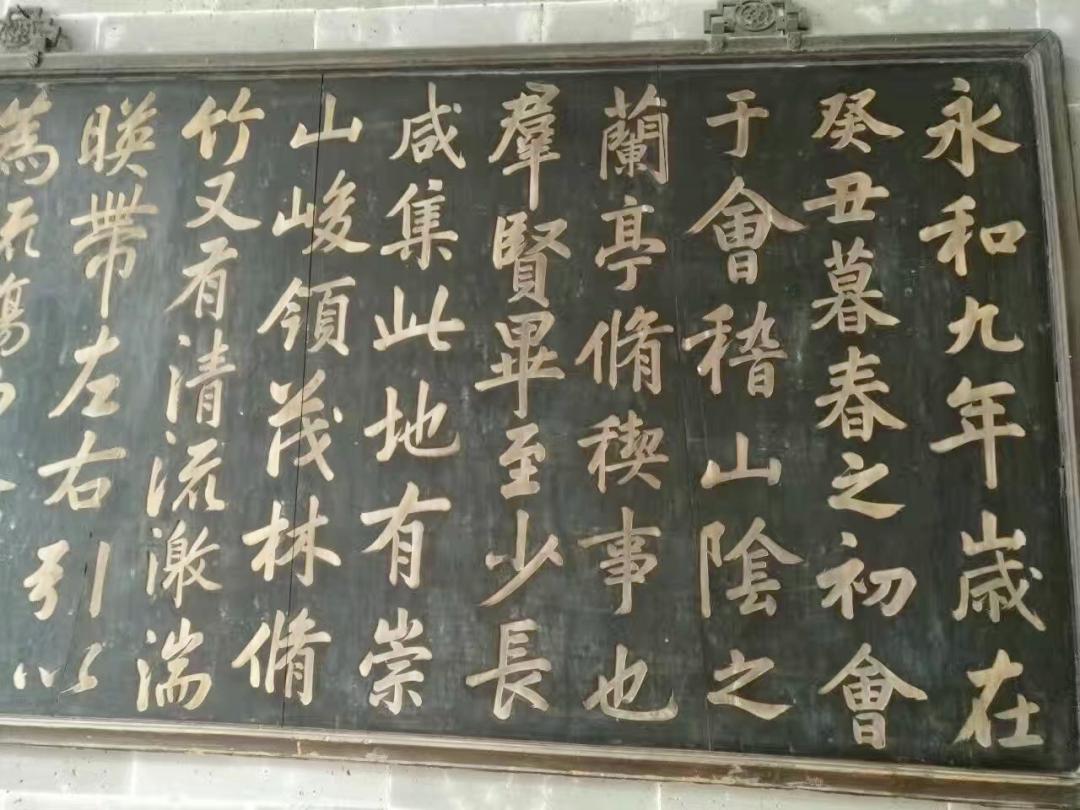 永和九年歳在
癸丑暮春之初會
于會稽山陰之
蘭亭脩稧事也
羣賢畢至少長
咸集此地有崇
山峻領茂林脩
竹又有清流激湍
暎帶左右引以
為流觴